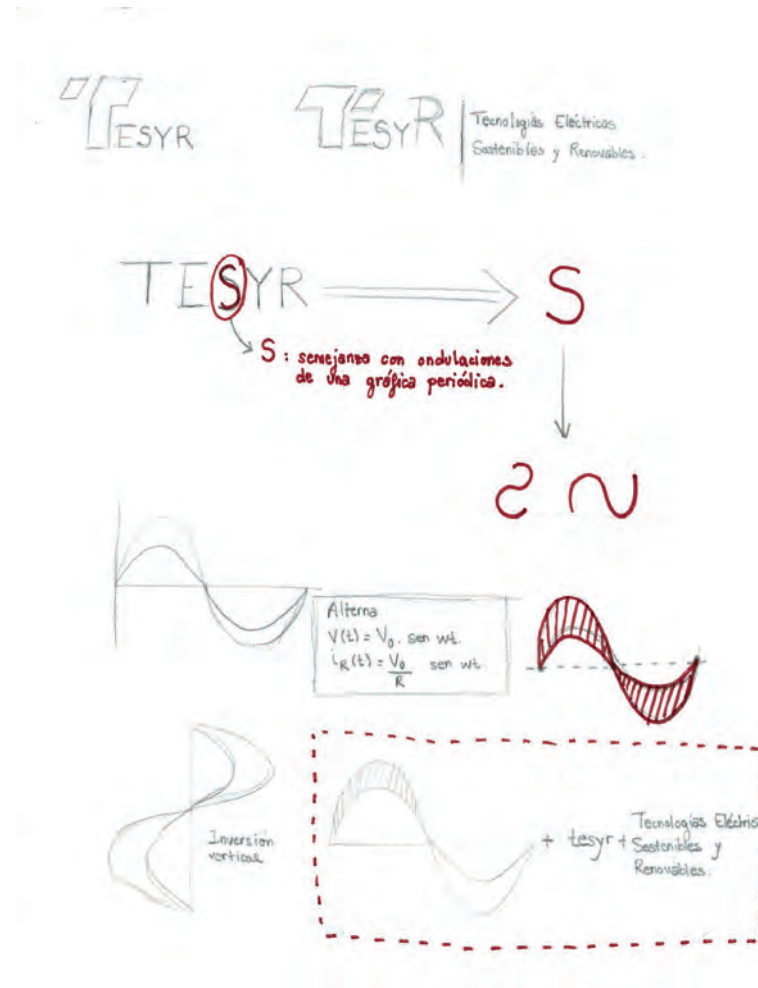 TESYR
TESYR
Tecnologías Eléctricas
Sostenibles y Renovables.
TESYR
S
S : semejanza con ondulaciones
de una gráfica periódica.
Alterna
V(t) = V₀. sen wt.
i_R(t) = V₀/R sen wt.
Inversión
vertical
+ tesyr +
Tecnologías Eléctric
Sostenibles y
Renovables.